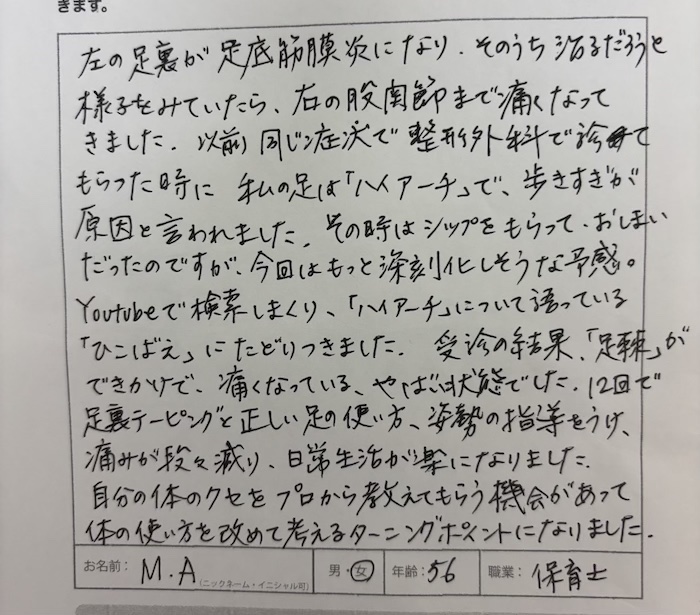 きます。
左の足裏が足底筋膜炎になり、そのうち治るだろうと
様子をみていたら、右の股関節まで痛くなって
きました。以前同じ症状で整形外科で診て
もらった時に私の足は「ハイアーチ」で、歩きすぎが
原因と言われました。その時はシップをもらって、おしまい
だったのですが、今回はもっと深刻化しそうな予感。
Youtubeで検索しまくり、「ハイアーチ」について語っている
「ひこばえ」にたどりつきました。受診の結果、「足棘」が
できかけで、痛くなっている、やばい状態でした。12回で
足裏テーピングと正しい足の使い方、姿勢の指導をうけ、
痛みが段々減り、日常生活が楽になりました。
自分の体のクセをプロから教えてもらう機会があって
体の使い方を改めて考えるターニングポイントになりました。
お名前： M.A (ニックネーム・イニシャル可) 男・女 年齢：56 職業： 保育士